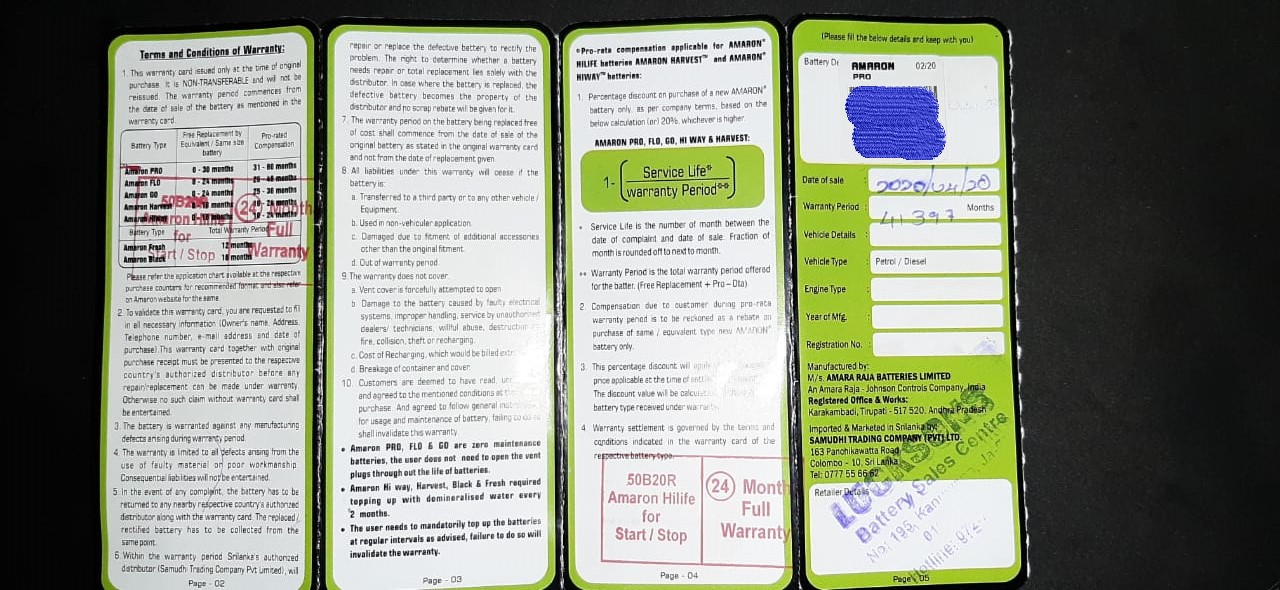 Terms and Conditions of Warranty:
1. This warranty card issued only at the time of original
purchase. It is NON-TRANSFERABLE and will not be
reissued. The warranty period commences from
the date of sale of the battery as mentioned in the
warranty card.
Battery Type
Free Replacement by Equivalent / Same size battery
Pro-rated Compensation
Amaron PRO 0 - 30 months 31 - 60 months
Amaron FLO 0 - 24 months 25 - 48 months
Amaron GO 0 - 24 months 25 - 36 months
Amaron Harvest 24 months
Amaron 18 - 24 months
Battery Type Total Warranty Period
Amaron Fresh 12 months
Amaron Black 18 months
50B20R
Amaron Hilife
for
Start / Stop
24 Month
Full
Warranty
Please refer the application chart available at the respective
purchase counters for recommended format and also refer
on Amaron website for the same.
2. To validate this warranty card, you are requested to fill
in all necessary information (Owner's name, Address,
Telephone number, e-mail address and date of
purchase).This warranty card together with original
purchase receipt must be presented to the respective
country's authorized distributor before any
repair/replacement can be made under warranty.
Otherwise no such claim without warranty card shall
be entertained.
3. The battery is warranted against any manufacturing
defects arising during warranty period.
4. The warranty is limited to all defects arising from the
use of faulty material or poor workmanship.
Consequential liabilities will not be entertained.
5. In the event of any complaint, the battery has to be
returned to any nearby respective country's authorized
distributor along with the warranty card. The replaced /
rectified battery has to be collected from the
same point.
6. Within the warranty period Srilanka's authorized
distributor (Samudhi Trading Company Pvt Limited), will
Page - 02
repair or replace the defective battery to rectify the
problem. The right to determine whether a battery
needs repair or total replacement lies solely with the
distributor. In case where the battery is replaced, the
defective battery becomes the property of the
distributor and no scrap rebate will be given for it.
7. The warranty period on the battery being replaced free
of cost shall commence from the date of sale of the
original battery as stated in the original warranty card
and not from the date of replacement given.
8. All liabilities under this warranty will cease if the
battery is:
a. Transferred to a third party or to any other vehicle /
Equipment.
b. Used in non-vehicular application.
c. Damaged due to fitment of additional accessories
other than the original fitment.
d. Out of warranty period.
9. The warranty does not cover.
a. Vent cover is forcefully attempted to open
b Damage to the battery caused by faulty electrical
systems, improper handling, service by unauthorized
dealers/ technicians, willful abuse, destruction
fire, collision, theft or recharging.
c. Cost of Recharging, which would be billed
d. Breakage of container and cover.
10. Customers are deemed to have read,
and agreed to the mentioned conditions at
purchase. And agreed to follow general
for usage and maintenance of battery, failing
shall invalidate this warranty.
• Amaron PRO, FLO & GO are zero maintenance
batteries, the user does not need to open the vent
plugs through out the life of batteries.
• Amaron Hi way, Harvest, Black & Fresh required
topping up with demineralised water every
2 months.
• The user needs to mandatorily top up the batteries
at regular intervals as advised, failure to do so will
invalidate the warranty.
Page - 03
*Pro-rata compensation applicable for AMARON®
HILIFE batteries AMARON HARVEST™ and AMARON®
HIWAY™ batteries:
1. Percentage discount on purchase of a new AMARON®
battery only, as per company terms, based on the
below calculation (or) 20%, whichever is higher.
AMARON PRO, FLO, GO, HI WAY & HARVEST:
1- (Service Life* / warranty Period**)
* Service Life is the number of month between the
date of complaint and date of sale. Fraction of
month is rounded off to next to month.
** Warranty Period is the total warranty period offered
for the batter. (Free Replacement + Pro – Dta)
2. Compensation due to customer during pro-rata
warranty period is to be reckoned as a rebate on
purchase of same / equivalent type new AMARON®
battery only.
3. This percentage discount will
price applicable at the time of
The discount value will be
battery type received under warranty.
4 Warranty settlement is governed by the terms and
conditions indicated in the warranty card of the
respective battery type.
50B20R
Amaron Hilife
for
Start / Stop
24 Month
Full
Warranty
Page - 04
(Please fill the below details and keep with you)
Battery De
AMARON 02/20
PRO
Date of sale : 2020/04/20
Warranty Period : Months
41397
Vehicle Details :
Vehicle Type : Petrol / Diesel
Engine Type :
Year of Mfg. :
Registration No. :
Manufactured by:
M/s. AMARA RAJA BATTERIES LIMITED
An Amara Raja - Johnson Controls Company, India
Registered Office & Works:
Karakambadi, Tirupati - 517 520. Andhra Pradesh
Imported & Marketed in Srilanka by:
SAMUDHI TRADING COMPANY (PVT) LTD.
163 Panchikawatta Road
Colombo - 10, Sri Lanka
Tel: 0777 55 66 62
Retailer Details
Battery Sales Centre
No, 195, Kan
01
Hotline: 072
Page 05